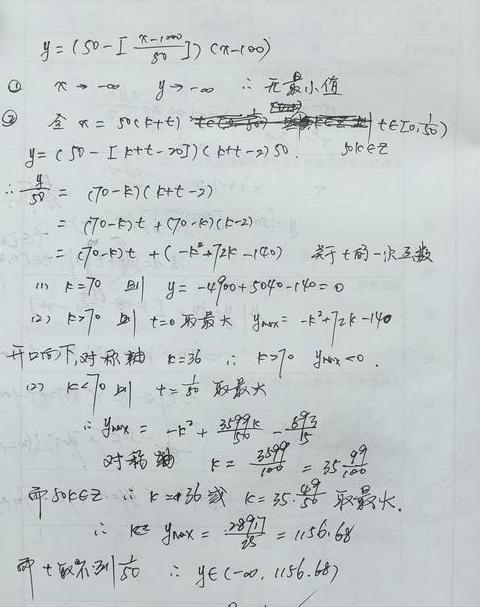 y = (50 - [ \frac{x-1000}{50} ]) (x-100)
① x → -∞ y → -∞ ∴ 无最小值
② 令 x = 50(k+t) t∈[0, \frac{1}{50})
y = (50 - [k+t-20]) (k+t-2) 50. 50k∈Z
∴ \frac{y}{50} = (70-k)(k+t-2)
= (70-k)t + (70-k)(k-2)
= (70-k)t + (-k²+72k-140) 关于t的一次函数
(1) k=70 则 y = -4900+5040-140=0
(2) k>70 则 t=0 取最大 y_{max} = -k²+72k-140
开口向下,对称轴 k=36 ∴ k>70 y_{max}<0.
(2) k<70 则 t=\frac{1}{50} 取最大
∴ y_{max} = -k² + \frac{3599k}{50} - \frac{693}{5}
对称轴 k = \frac{3599}{100} = 35\frac{99}{100}
而 50k∈Z ∴ k=36 或 k=35.\frac{49}{50} 取最大.
∴ y_{max} = \frac{28917}{25} = 1156.68
而 t取不到\frac{1}{50} ∴ y∈(-∞, 1156.68)